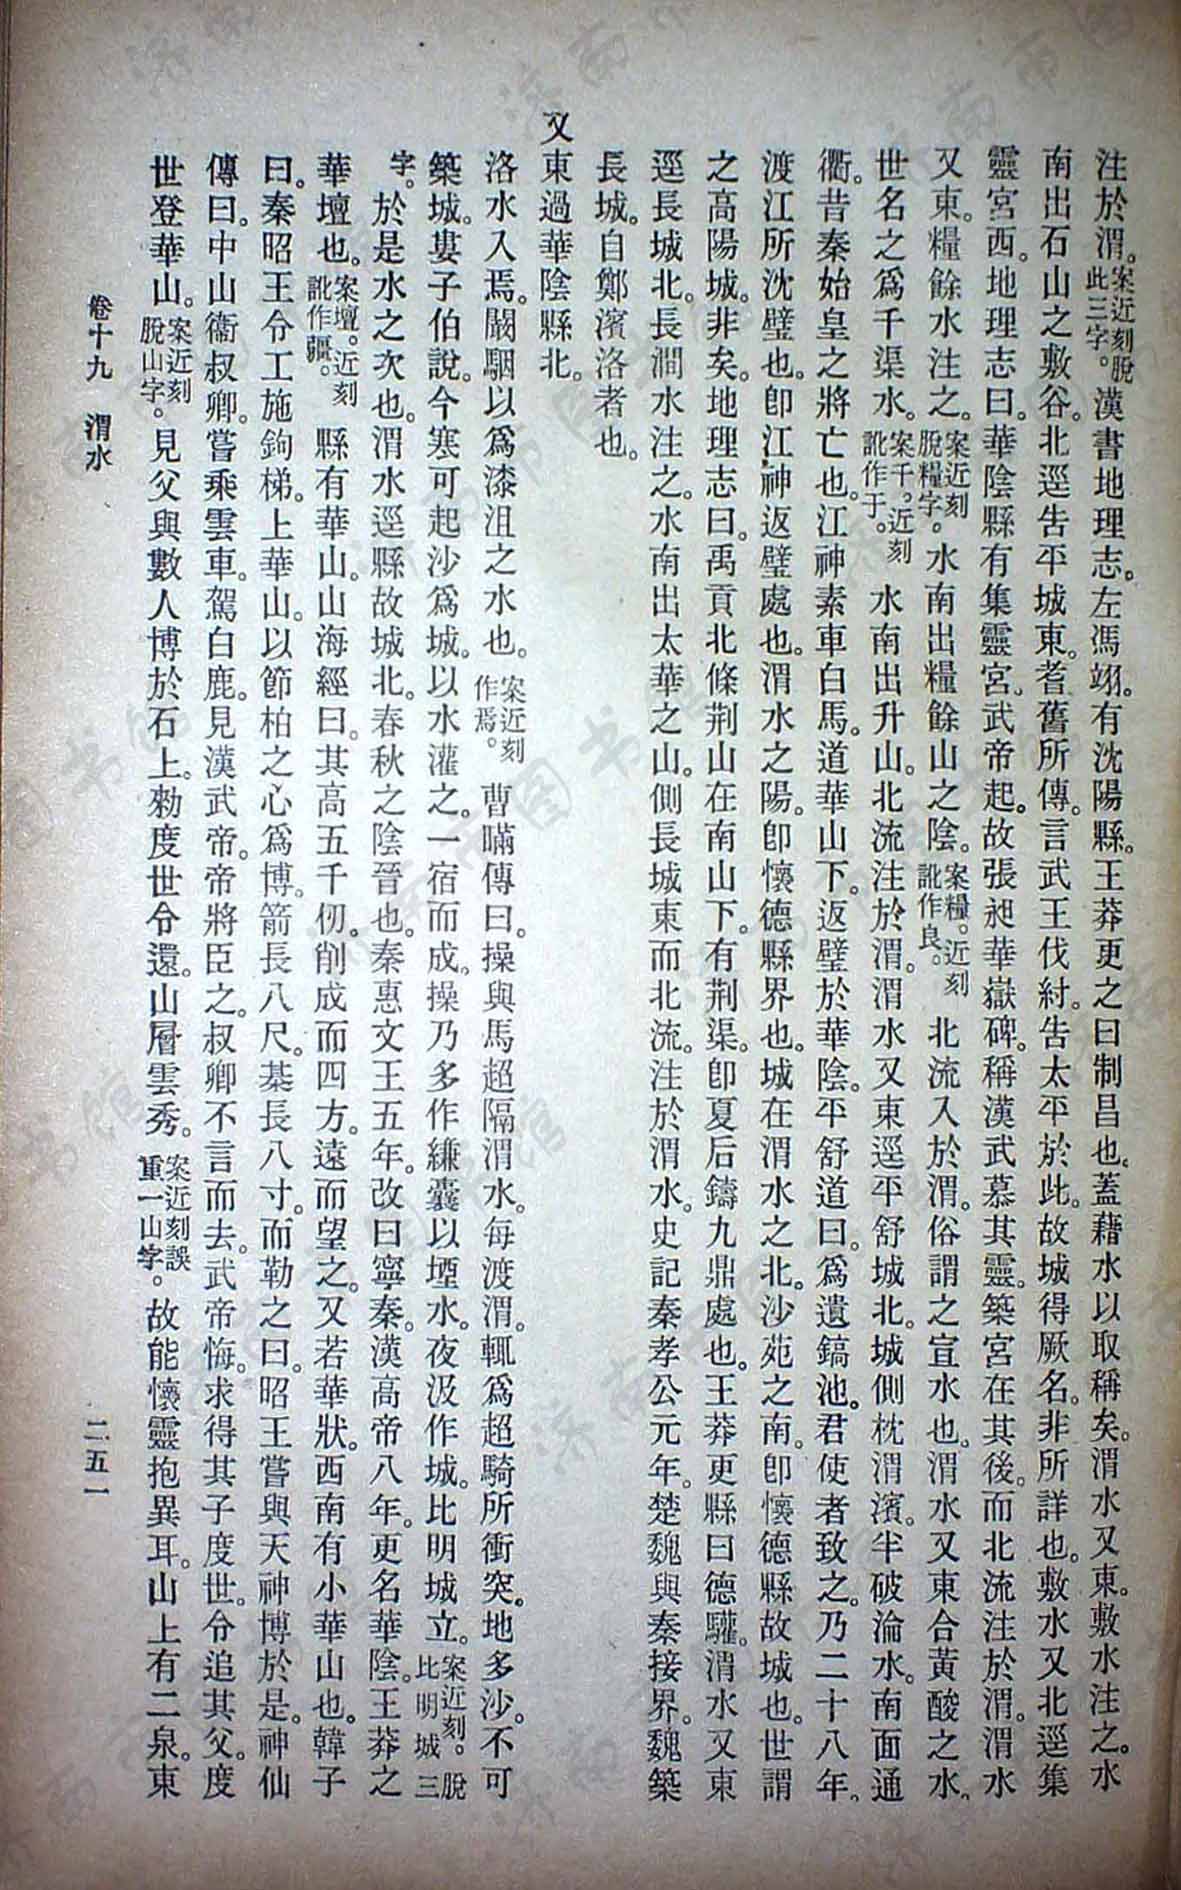 注於渭。案近刻脫此三字。漢書地理志。左馮翊。有沈陽縣。王莽更之曰制昌也。蓋藉水以取稱矣。渭水又東。敷水注之。水
南出石山之敷谷。北逕告平城東。耆舊所傳。言武王伐紂。告太平於此。故城得厥名。非所詳也。敷水又北逕集
靈宮西。地理志曰。華陰縣有集靈宮。武帝起。故張昶華嶽碑。稱漢武慕其靈。築宮在其後。而北流注於渭。渭水
又東。糧餘水注之。案近刻脫糧字。水南出糧餘山之陰。案糧。近刻訛作良。北流入於渭。俗謂之宣水也。渭水又東合黃酸之水。
世名之爲千渠水。案千。近刻訛作于。水南出升山。北流注於渭。渭水又東逕平舒城北。城側枕渭濱。半破淪水。南面通
衢。昔秦始皇之將亡也。江神素車白馬。道華山下。返璧於華陰。平舒道曰。爲遺鎬池。君使者致之。乃二十八年。
渡江所沈璧也。卽江神返璧處也。渭水之陽。卽懷德縣界也。城在渭水之北。沙苑之南。卽懷德縣故城也。世謂
之高陽城。非矣。地理志曰。禹貢北條荆山在南山下。有荆渠。卽夏后鑄九鼎處也。王莽更縣曰德驩。渭水又東
逕長城北。長澗水注之。水南出太華之山。側長城東而北流。注於渭水。史記秦孝公元年。楚魏與秦接界。魏築
長城。自鄭濱洛者也。
又東過華陰縣北。
洛水入焉。闞駰以爲漆沮之水也。案近刻作焉。曹瞞傳曰。操與馬超隔渭水。每渡渭。輒爲超騎所衝突。地多沙。不可
築城。婁子伯說。今寒可起沙爲城。以水灌之。一宿而成。操乃多作縑囊以堙水。夜汲作城。比明城立。案近刻。脫比明城三
字。於是水之次也。渭水逕縣故城北。春秋之陰晉也。秦惠文王五年。改曰寧秦。漢高帝八年。更名華陰。王莽之
華壇也。案壇。近刻訛作疆。縣有華山。山海經曰。其高五千仞。削成而四方。遠而望之。又若華狀。西南有小華山也。韓子
曰。秦昭王令工施鉤梯。上華山。以節柏之心爲博。箭長八尺。棊長八寸。而勒之曰。昭王嘗與天神博於是。神仙
傳曰。中山衞叔卿。嘗乘雲車。駕白鹿。見漢武帝。帝將臣之。叔卿不言而去。武帝悔。求得其子度世。令追其父。度
世登華山。案近刻脫山字。見父與數人博於石上。勑度世令還。山層雲秀。案近刻誤重一山字。故能懷靈抱異耳。山上有二泉。東
卷十九 渭水 二五一